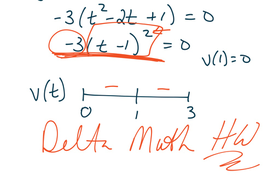 -3(t²-2t+1)=0
-3(t-1)²=0
v(1)=0
v(t) — —
0 1 3
Delta Math HW